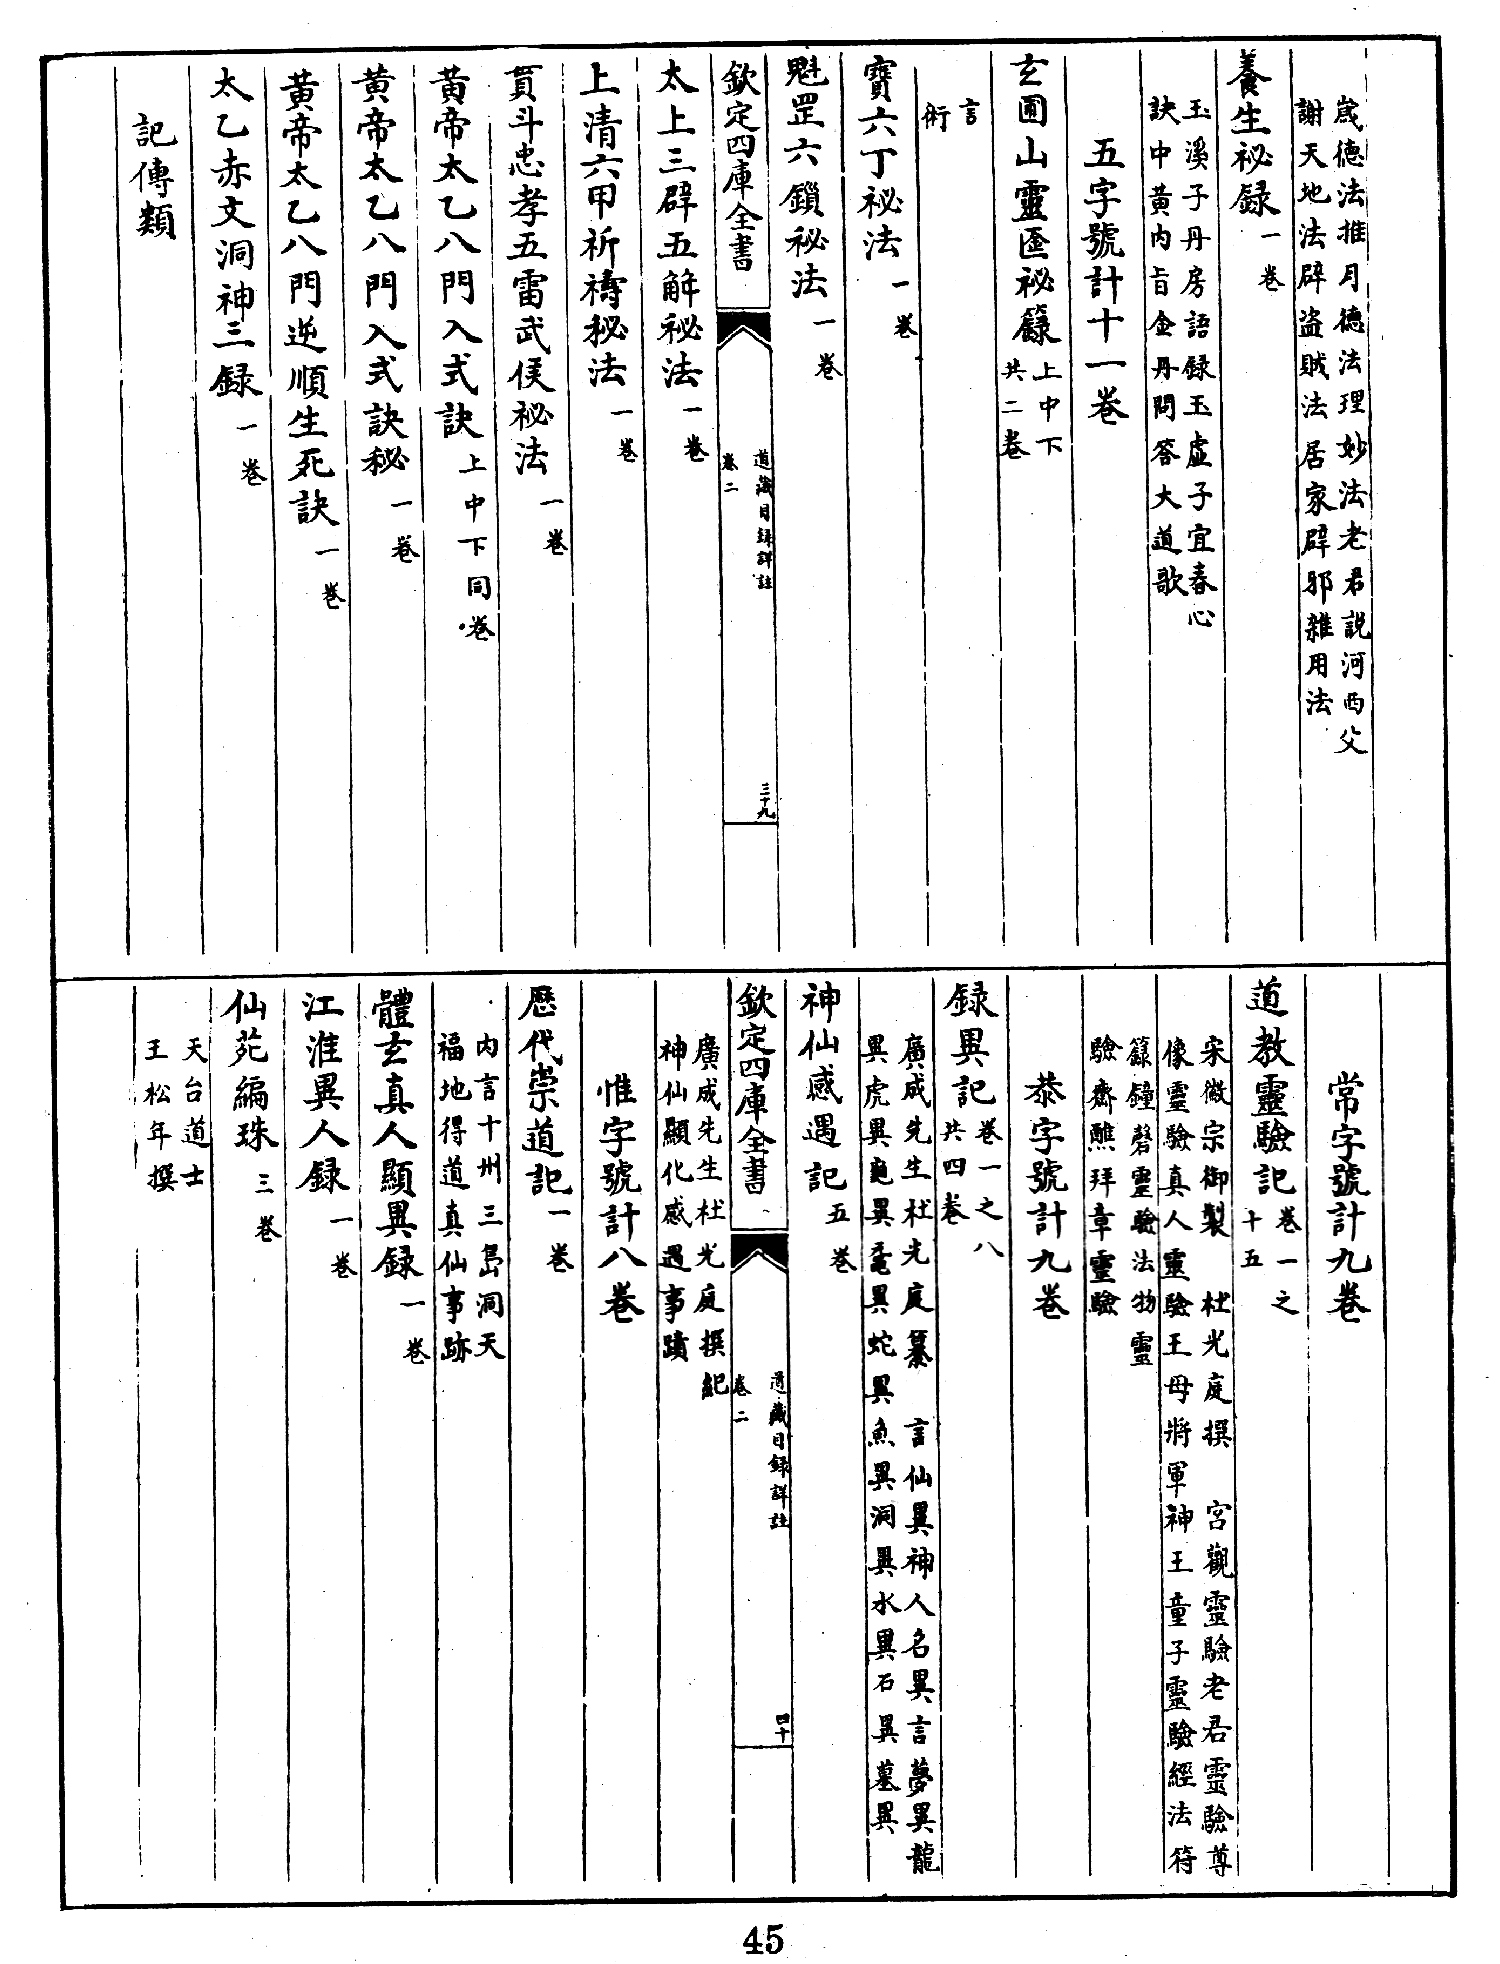 歳德法推月德法理妙法老君説河西父
謝天地法辟盗賊法居家辟邪雜用法
養生祕録一卷
玉溪子丹房語録玉虚子宜春心
訣中黄内旨金丹問答大道歌
五字號計十一卷
玄圃山靈匨祕籙上中下
共二卷
言
術
寶六丁祕法一卷
魁罡六鎖秘法一卷
欽定四庫全書
道藏目録詳註
卷二
三十九
太上三辟五解秘法一卷
上清六甲祈禱秘法一卷
貫斗忠孝五雷武侯祕法一卷
黄帝太乙八門入式訣上中下同卷
黄帝太乙八門入式訣秘一卷
黄帝太乙八門逆順生死訣一卷
太乙赤文洞神三録一卷
記傳類
常字號計九卷
道教靈驗記卷一之
十五
宋微宗御製 杜光庭撰 宮觀靈驗老君靈驗尊
像靈驗真人靈驗王母將軍神王童子靈驗經法符
籙鐘磬靈驗法物靈
驗齋醮拜章靈驗
恭字號計九卷
録異記卷一之八
共四卷
廣成先生杜光庭纂 言仙異神人名異言夢異龍
異虎異龜異黿異蛇異魚異洞異水異石異墓異
神仙感遇記五卷
欽定四庫全書
道藏目録詳註
卷二
四十
廣成先生杜光庭撰紀
神仙顯化感遇事蹟
惟字號計八卷
歴代崇道記一卷
内言十州三島洞天
福地得道真仙事跡
體玄真人顯異録一卷
江淮異人録一卷
仙苑編珠三卷
天台道士
王松年撰
45